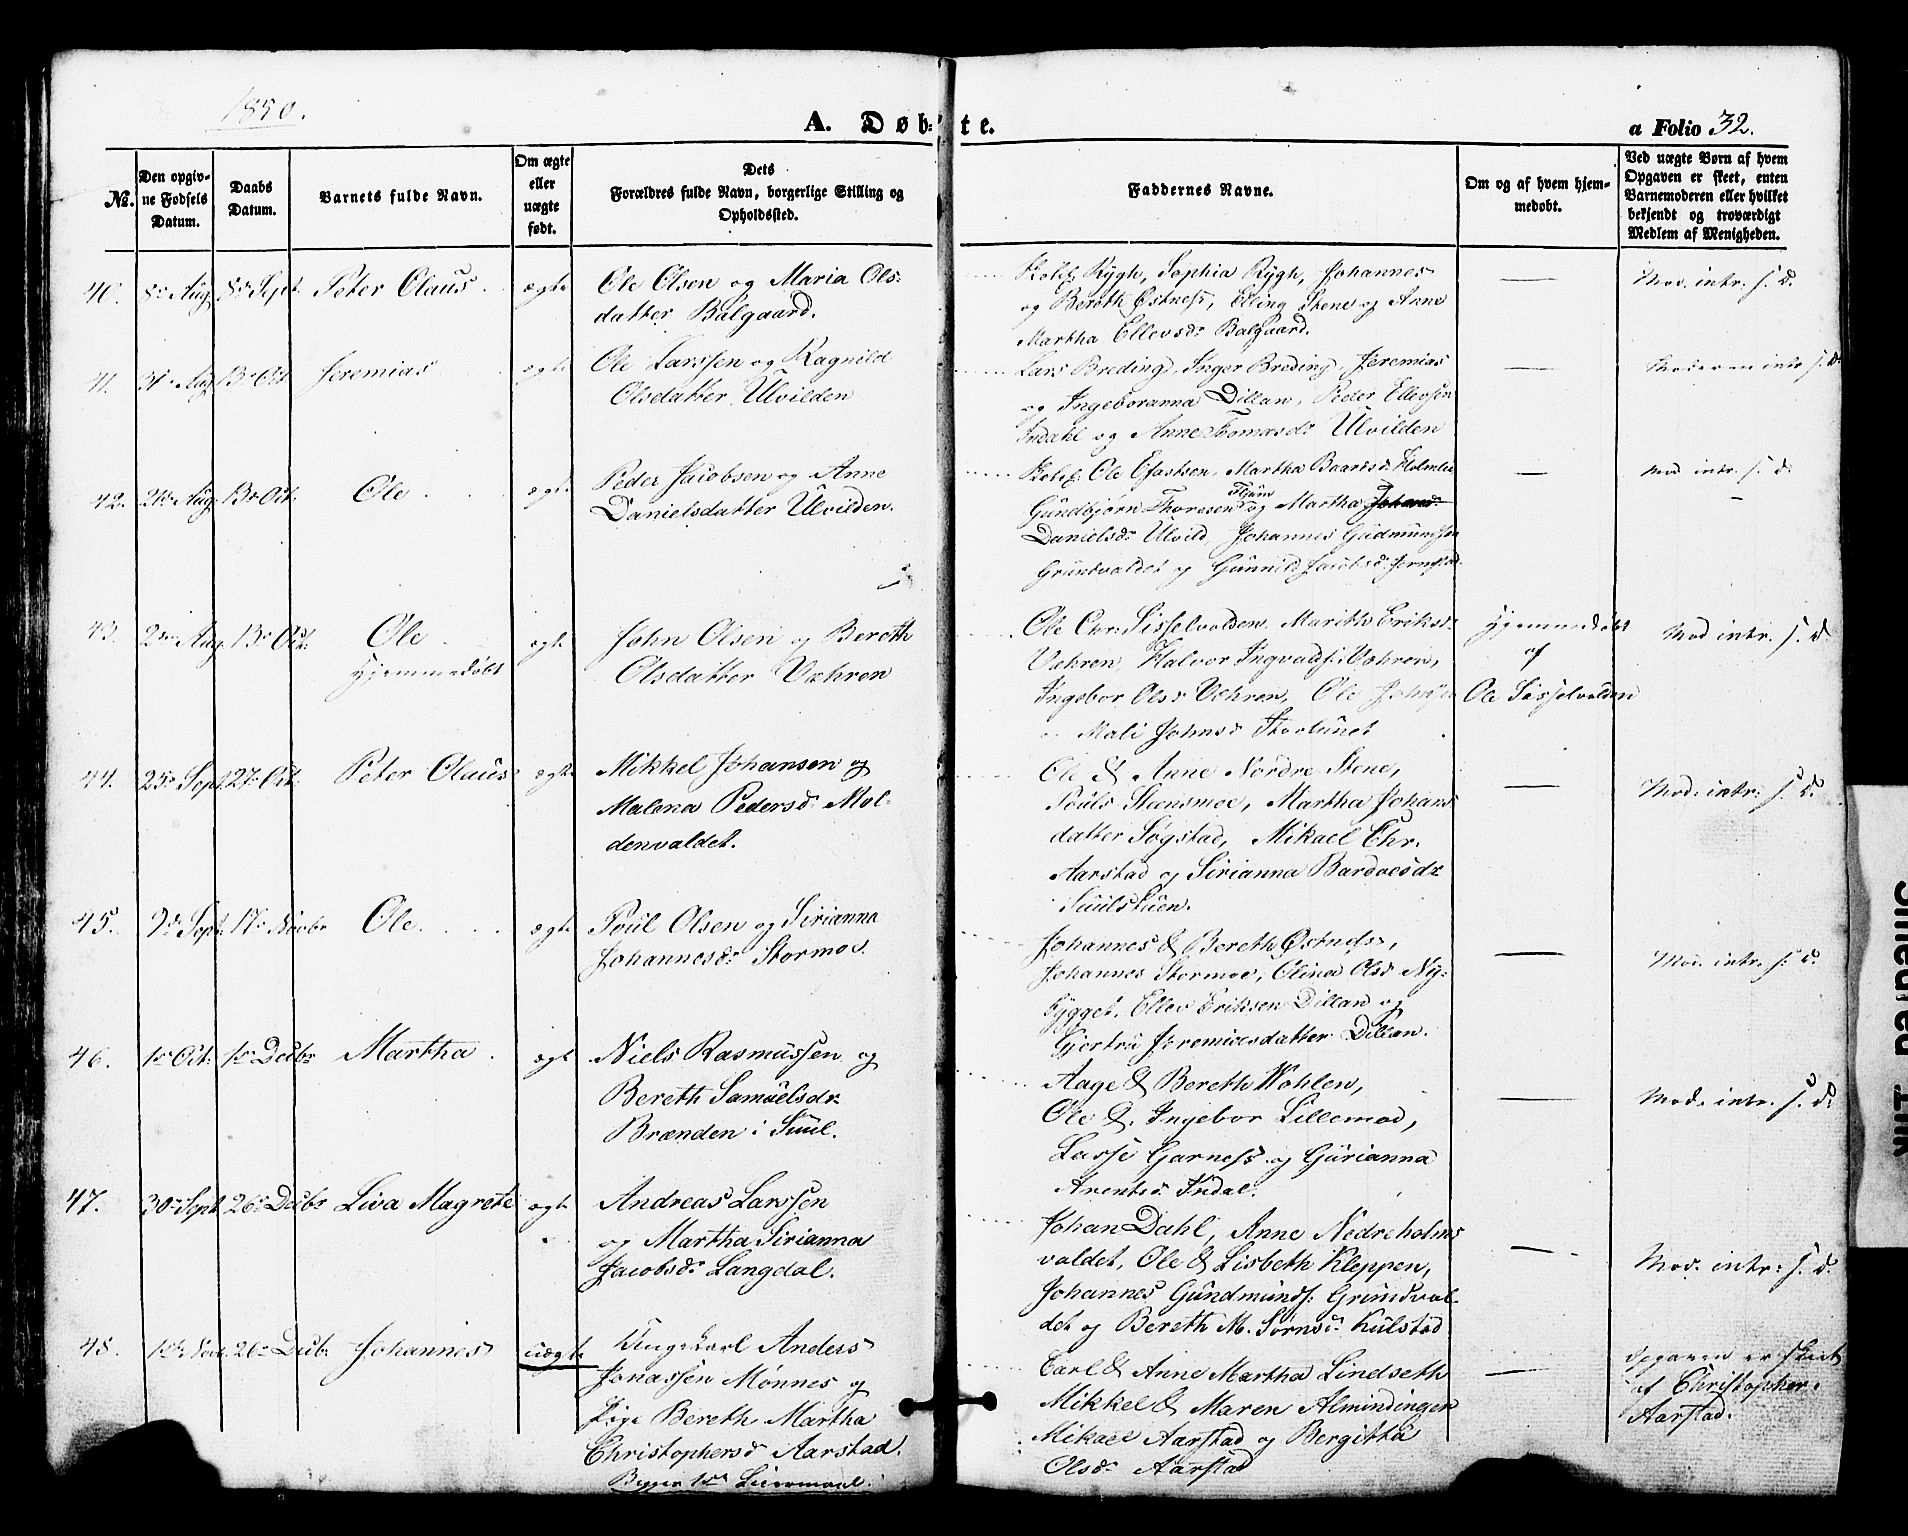 1850.
A. Døb- te.
a Folio 32.
No.
Den opgiv-
ne Fødsels
Datum.
Daabs
Datum.
Barnets fulde Navn.
Om ægte
eller
uægte
født.
Dets
Forældres fulde Navn, borgerlige Stilling og
Opholdssted.
Faddernes Navne.
Om og af hvem hjem-
medøbt.
Ved uægte Børn af hvem
Opgaven er skeet, enten
Barnemoderen eller hvilket
bekjendt og troværdigt
Medlem af Menigheden.
40. 8de Aug 8de Sept Peter Olaus ægte
Ole Olsen og Maria Ols-
datter Balgaard.
Rygh, Sophia Rygh, Johannes
og Bereth Østness, Elling Stene og Anne
Martha Ellevsdr Balgaard.
—
Mod. intr. s. D.
41. 31 Aug 13 Oct Jeremias ægte
Ole Larssen og Ragnild
Olsdatter Ulvilden
Lars Breding, Inger Breding, Jeremias
og Ingeboranna Dillan, Peder Ellevsen
Indahl og Anne Thomasdr Ulvilden
—
Moderen intr s. D.
42. Aug 13 Oct. Ole ægte
Peder Jacobsen og Anne
Danielsdatter Ulvilden.
Ole Efastsen, Martha Baardsdr Holmlie
Flyum
Gundbjørn Thoresen og Martha Johans
Danielsdr Ulvild, Johannes Gudmundsen
Grundvaldet og Gunnild Jacobsdr
—
Mod intr. s. D.
43. Aug. 13 Oct. Ole ægte
Hjemmedøbt
John Olsen og Bereth
Olsdatter Væhren
Ole Chr. Sisselvolden. Marith Eriksd.
Væhren, Halvor Ingvads. Væhren,
Ingebor Olsd Væhren, Ole
Mali Johnsd Storlunet
Hjemmedøbt
af
Ole Sisselvolden
Mod intr. s. D.
44. 25 Sept 27 Oct. Peter Olaus ægte
Mikkel Johansen og
Malena Pedersdr Mol-
denvaldet.
Ole & Anne Nordre Stene,
Pouls Steensmoe, Martha Johans
datter Søgstad, Mikael Chr.
Aarstad og Sirianna Bardoesdr
Suulstuen.
—
Mod. intr. s. D.
45. Sept. 17 Novbr Ole ægte
Poul Olsen og Sirianna
Johannesdr Stormoe.
Johannes & Bereth Østness,
Johannes Stormoe, Olina Olsd Ny-
bygget, Ellev Eriksen Dillan og
Gjertru Jeremiæsdatter Dillan.
—
Mod. intr. s. D.
46. 1 Oct. 1 Decbr Martha ægt
Niels Rasmussen og
Bereth Samuelsdr
Brænden i Suul.
Aage & Bereth Wohlen,
Ole & Ingebor Lillemoe,
Lasse Garness og Gurianna
Arentsd Indal.
—
Mod. intr. s. D.
47. 30 Sept 26 Decbr Liva Magrete ægt
Andreas Larssen
og Martha Sirianna
Jacobsdr Langdal.
Johan Dahl, Anne Nedreholms
valdet, Ole & Lisbeth Kleppen,
Johannes Gundmunds. Grundval-
det og Bereth M. Sørnsdr Kulstad
—
Mod. intr. s. D.
48. 26 Decbr Johannes uægte
Ungekarl Anders
Jonassen Mønnes og
Pige Bereth Martha
Christophersd Aarstad.
Begges 1ste Leiermaal.
Carl & Anne Martha Lindseth
Mikkel & Maren Almindingen
Mikael Aarstad og Bergitta
Olsdr Aarstad
—
Opgaven er skeet
af Christopher
Aarstad.